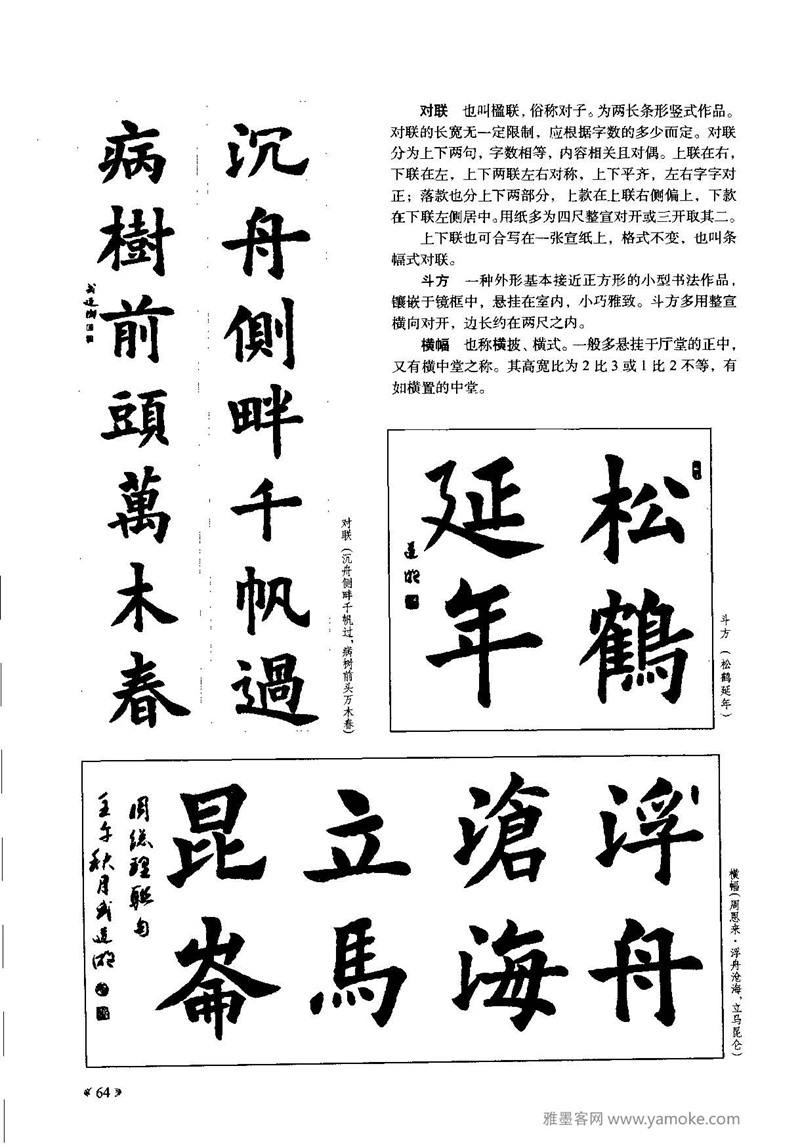 对联 也叫楹联，俗称对子。为两长条形竖式作品。
对联的长宽无一定限制，应根据字数的多少而定。对联
分为上下两句，字数相等，内容相关且对偶。上联在右，
下联在左，上下两联左右对称，上下平齐，左右字字对
正；落款也分上下两部分，上款在上联右侧偏上，下款
在下联左侧居中。用纸多为四尺整宣对开或三开取其二。
上下联也可合写在一张宣纸上，格式不变，也叫条
幅式对联。
斗方 一种外形基本接近正方形的小型书法作品，
镶嵌于镜框中，悬挂在室内，小巧雅致。斗方多用整宣
横向对开，边长约在两尺之内。
横幅 也称横披、横式。一般多悬挂于厅堂的正中，
又有横中堂之称。其高宽比为2比3或1比2不等，有
如横置的中堂。
沉舟側畔千帆過
病樹前頭萬木春
对联（沉舟侧畔千帆过，病树前头万木春）
松鶴
延年
斗方（松鹤延年）
浮舟
滄海
立馬
昆崙
周总理联句
壬午秋月武道湖
横幅（周恩来·浮舟沧海，立马昆仑）
《64》
雅墨客网 www.yamoke.com